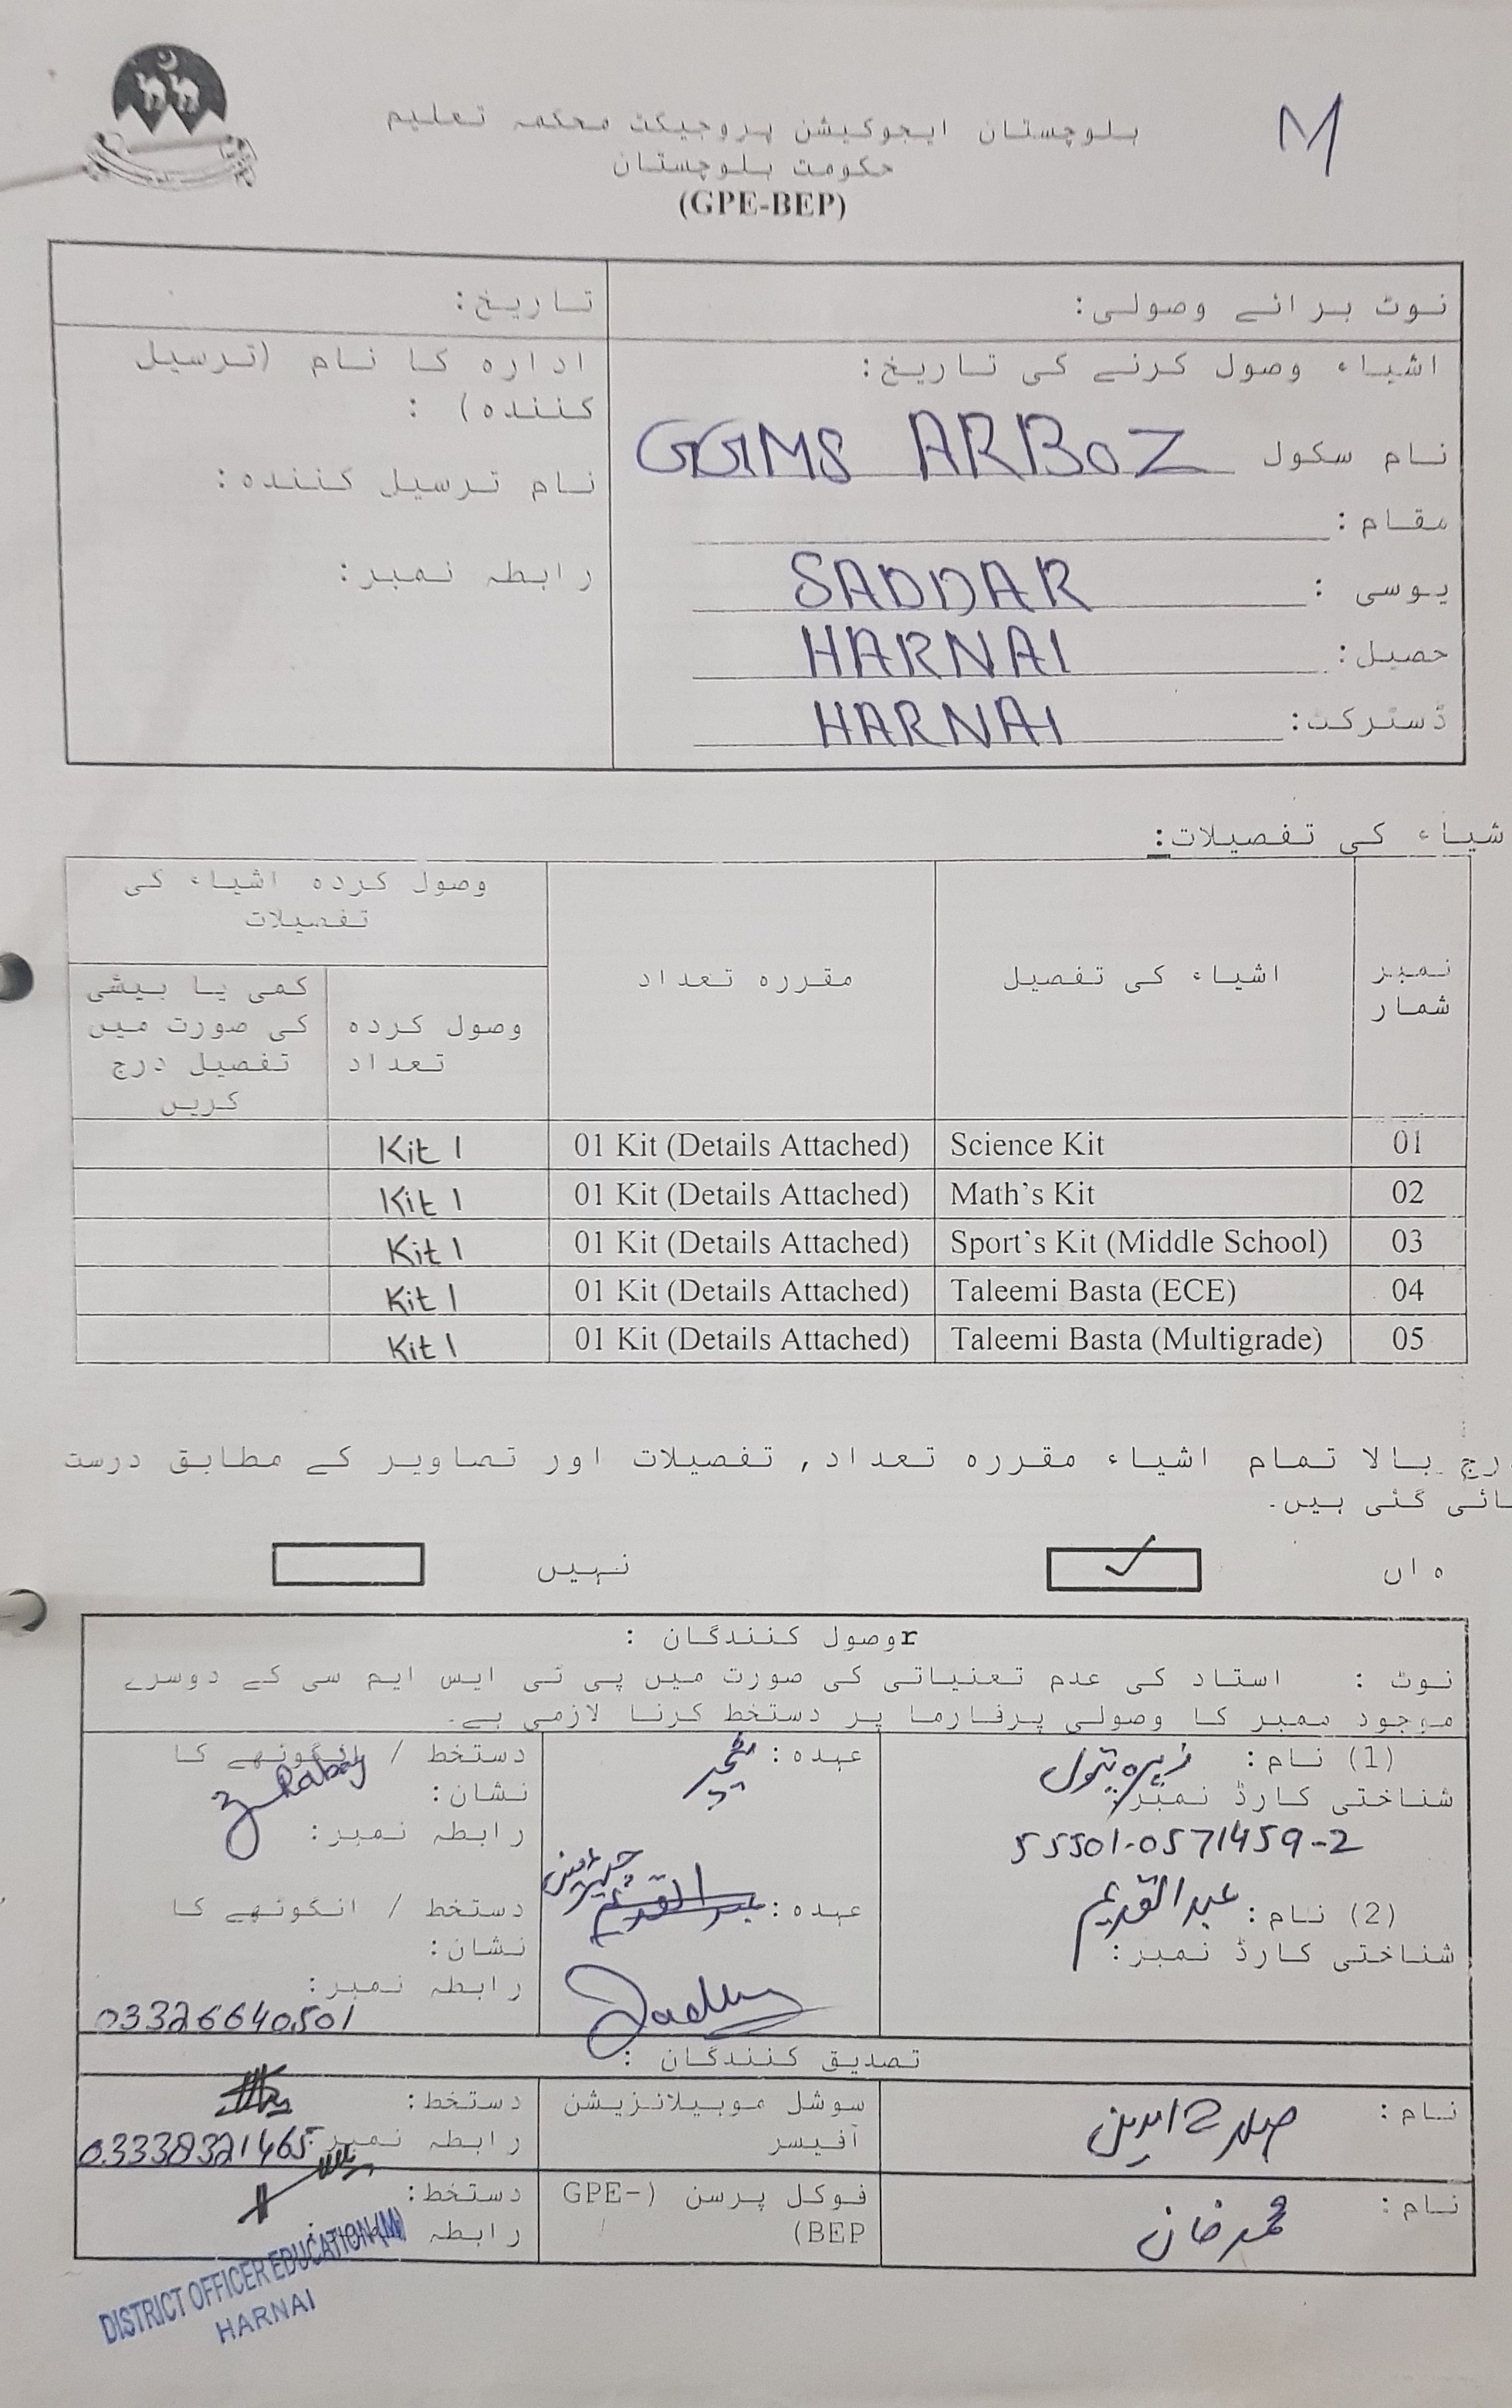 M
بلوچستان ایجوکیشن پروجیکٹ محکمہ تعلیم
حکومت بلوچستان
(GPE-BEP)
نوٹ برائے وصولی:
تاریخ:
اشیاء وصول کرنے کی تاریخ:
نام سکول GGMS ARBOZ
مقام:
یوسی : SADDAR
حصیل: HARNAI
ڈسٹرکٹ: HARNAI
ادارہ کا نام (ترسیل
کنندہ) :
نام ترسیل کنندہ:
رابطہ نمبر:
شیاء کی تفصیلات:
نمبر شمار
اشیاء کی تفصیل
مقررہ تعداد
وصول کردہ اشیاء کی
تفصیلات
وصول کردہ
تعداد
کمی یا بیشی
کی صورت میں
تفصیل درج
کریں
01 Science Kit 01 Kit (Details Attached) Kit 1
02 Math's Kit 01 Kit (Details Attached) Kit 1
03 Sport's Kit (Middle School) 01 Kit (Details Attached) Kit 1
04 Taleemi Basta (ECE) 01 Kit (Details Attached) Kit 1
05 Taleemi Basta (Multigrade) 01 Kit (Details Attached) Kit 1
رج بالا تمام اشیاء مقررہ تعداد, تفصیلات اور تصاویر کے مطابق درست
ائی گئی ہیں۔
ہ اں ✓
نہیں
rوصول کنندگان :
نوٹ : استاد کی عدم تعنیاتی کی صورت میں پی ٹی ایس ایم سی کے دوسرے
موجود ممبر کا وصولی پرفارما پر دستخط کرنا لازمی ہے۔
(1) نام: زہرہ بتول
شناختی کارڈ نمبر:
55501-0571459-2
عہدہ: ٹیچر
دستخط / انگوٹھے کا
نشان:
رابطہ نمبر:
(2) نام: عبدالقدیم
شناختی کارڈ نمبر:
عہدہ: چیئرمین
دستخط / انگوٹھے کا
نشان:
رابطہ نمبر:
03326640501
تصدیق کنندگان :
نام:
سوشل موبیلائزیشن
آفیسر
دستخط:
رابطہ نمبر: 03338321465
نام: محمد خان
فوکل پرسن (GPE-
BEP)
دستخط:
رابطہ نمبر:
DISTRICT OFFICER EDUCATION (M)
HARNAI